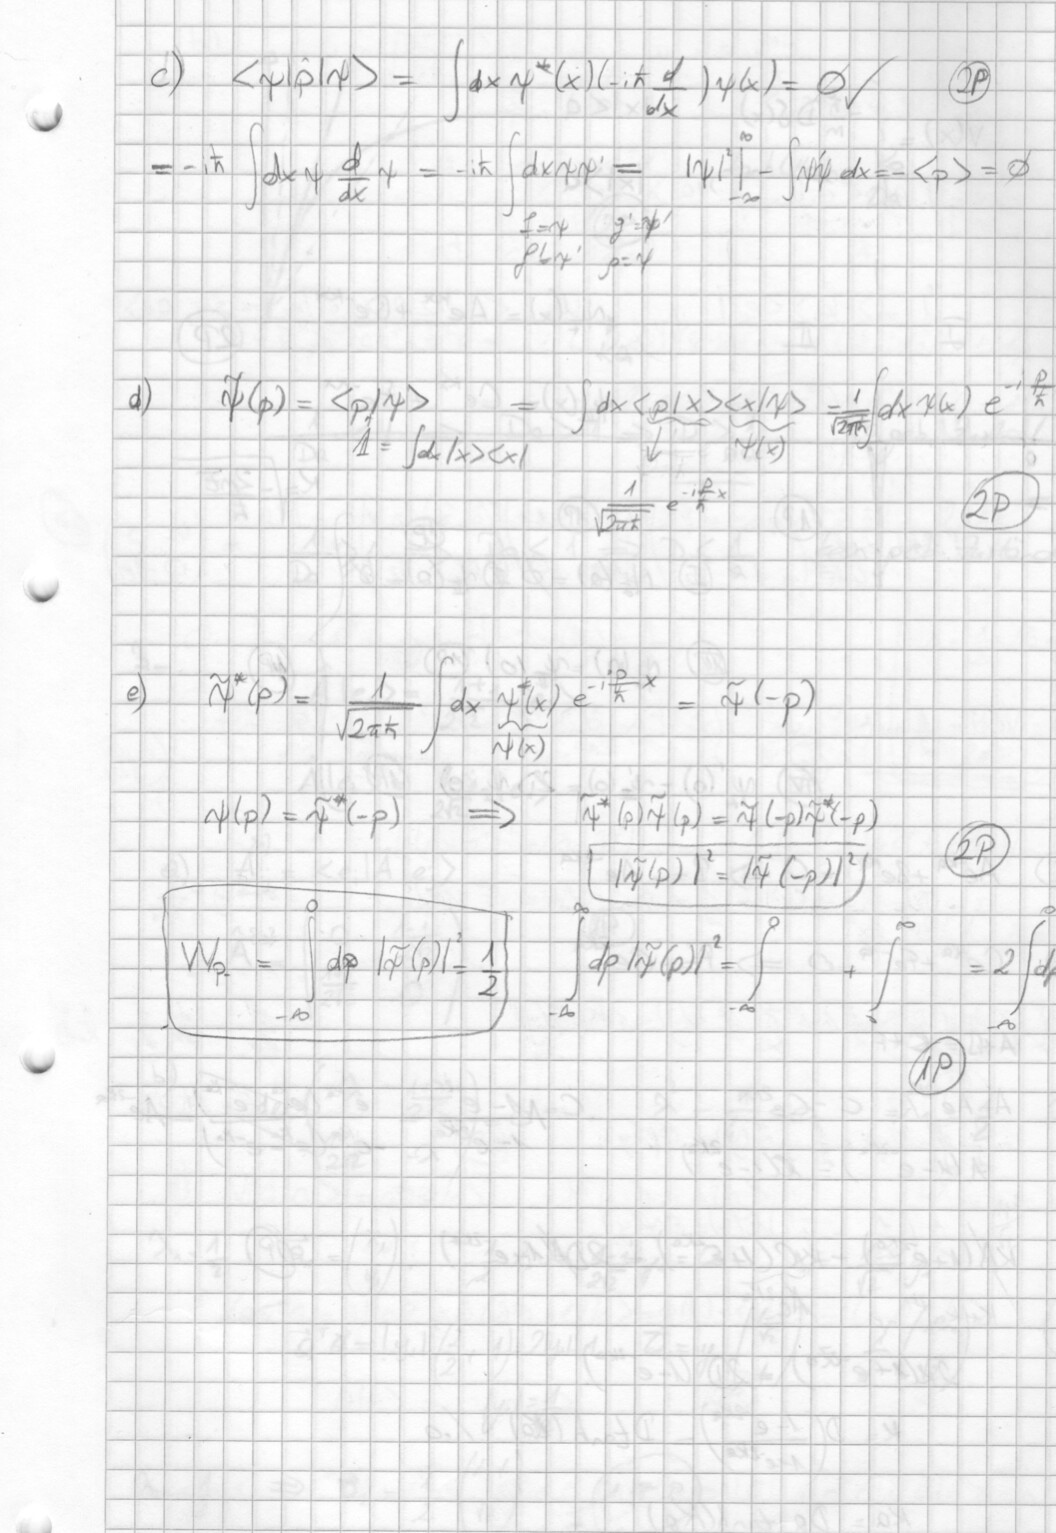 c) <ψ|p̂|ψ> = ∫dx ψ*(x)(-iħ d/dx)ψ(x) = 0 ✓ 2P
= -iħ ∫dx ψ d/dx ψ = -iħ ∫dx ψψ' = |ψ|²|_{-∞}^{∞} - ∫ψ'ψ dx = -<p> = 0
f=ψ g'=ψ'
f'=ψ' g=ψ
d) ψ̃(p) = <p|ψ> = ∫dx <p|x><x|ψ> = 1/√(2πħ) ∫dx ψ(x) e^{-i p/ħ
1 = ∫dx|x><x| ↓ ψ(x)
1/√(2πħ) e^{-i p/ħ x} 2P
e) ψ̃*(p) = 1/√(2πħ) ∫dx ψ*(x) e^{-i p/ħ x} = ψ̃(-p)
ψ(x)
ψ(p) = ψ̃*(-p) ⟹ ψ̃*(p)ψ̃(p) = ψ̃(-p)ψ̃*(-p)
|ψ̃(p)|² = |ψ̃(-p)|² 2P
W_{p-} = ∫_{-∞}^{0} dp |ψ̃(p)|² = 1/2 ∫_{-∞}^{∞} dp |ψ̃(p)|² = ∫_{-∞}^{0} + ∫^{∞} = 2 ∫_{-∞}^{0} dp
1P